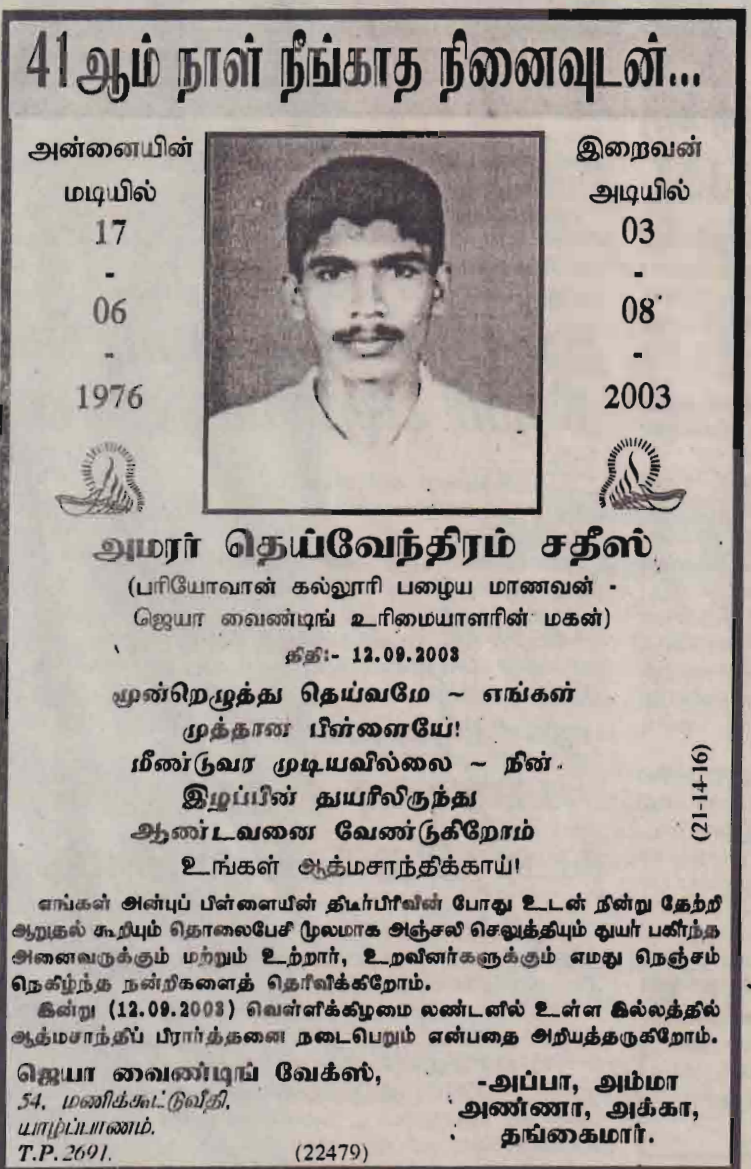 41ஆம் நாள் நீங்காத நினைவுடன்...
அன்னையின்
மடியில்
17
-
06
-
1976
இறைவன்
அடியில்
03
-
08
-
2003
அமரர் தெய்வேந்திரம் சதீஸ்
(பரியோவான் கல்லூரி பழைய மாணவன் -
ஜெயா வைண்டிங் உரிமையாளரின் மகன்)
திதி:- 12.09.2003
மூன்றெழுத்து தெய்வமே ~ எங்கள்
முத்தான பிள்ளையே!
மீண்டுவர முடியவில்லை ~ நின்
இழப்பின் துயரிலிருந்து
ஆண்டவனை வேண்டுகிறோம்
உங்கள் ஆத்மசாந்திக்காய்!
(21-14-16)
எங்கள் அன்புப் பிள்ளையின் திடீர்பிரிவின் போது உடன் நின்று தேற்றி
ஆறுதல் கூறியும் தொலைபேசி மூலமாக அஞ்சலி செலுத்தியும் துயர் பகிர்ந்த
அனைவருக்கும் மற்றும் உற்றார், உறவினர்களுக்கும் எமது நெஞ்சம்
நெகிழ்ந்த நன்றிகளைத் தெரிவிக்கிறோம்.
இன்று (12.09.2003) வெள்ளிக்கிழமை லண்டனில் உள்ள இல்லத்தில்
ஆத்மசாந்திப் பிரார்த்தனை நடைபெறும் என்பதை அறியத்தருகிறோம்.
ஜெயா வைண்டிங் வேக்ஸ்,
54, மணிக்கூட்டுவீதி,
யாழ்ப்பாணம்.
T.P. 2691.
(22479)
-அப்பா, அம்மா
அண்ணா, அக்கா,
தங்கைமார்.